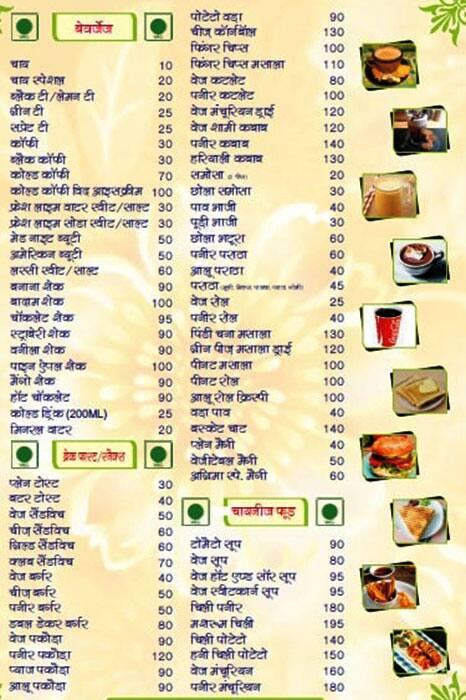 बेवर्जेज
चाय 10
चाय स्पेशल 20
ब्लैक टी/लेमन टी 20
ग्रीन टी 25
सप्रेट टी 25
कॉफी 30
ब्लैक कॉफी 30
कोल्ड कॉफी 70
कोल्ड कॉफी विद आइसक्रीम 100
फ्रेश लाइम वाटर स्वीट/साल्ट 30
फ्रेश लाइम सोडा स्वीट/साल्ट 30
मेड नाइट ब्यूटी 50
अमेरिकन ब्यूटी 50
लस्सी स्वीट/साल्ट 60
बनाना शैक 90
बादाम शैक 100
चॉकलेट शैक 95
स्ट्राबेरी शैक 90
वनीला शैक 90
पाइन ऐपल शैक 100
मैंगो शैक 90
हॉट चॉकलेट 90
कोल्ड ड्रिंक (200ML) 25
मिनरल वाटर 20
ब्रेक फास्ट/स्नैक्स
प्लेन टोस्ट 30
बटर टोस्ट 40
वेज सैंडविच 50
चीज़ सैंडविच 60
ग्रिल्ड सैंडविच 60
क्लब सैंडविच 70
वेज बर्गर 40
चीज़ बर्गर 50
पनीर बर्गर 50
डबल डेकर बर्गर 80
वेज पकौडा 90
पनीर पकौडा 120
प्याज पकौडा 90
आलू पकौडा 90
पोटेटो वड़ा 90
चीज़ कॉर्नबॉल 130
फिंगर चिप्स 100
फिंगर चिप्स मसाला 110
वेज कटलेट 80
पनीर कटलेट 100
वेज मंचूरियन ड्राई 120
वेज शामी कबाब 120
पनीर कबाब 140
हरियाली कबाब 130
समोसा 20
छोला समोसा 30
पाव भाजी 40
पूड़ी भाजी 30
छोला भटूरा 60
पनीर पराठा 60
आलू पराठा 40
पराठा 45
वेज रोल 25
पनीर रोल 40
पिंडी चना मसाला 130
ग्रीन पीज़ मसाला ड्राई 120
पीनट मसाला 100
पीनट रोल 100
आलू रोल क्रिस्पी 100
वड़ा पाव 40
बास्केट चाट 140
प्लेन मैगी 40
वेजीटेबल मैगी 50
अग्रिमा स्पे. मैगी 60
चायनीज फूड
टोमैटो सूप 90
वेज सूप 80
वेज हॉट एण्ड सॉर सूप 95
वेज स्वीटकार्न सूप 95
चिली पनीर 180
मशरूम चिली 195
चिली पोटेटो 140
हनी चिली पोटेटो 150
वेज मंचूरियन 160
पनीर मंचूरियन 180